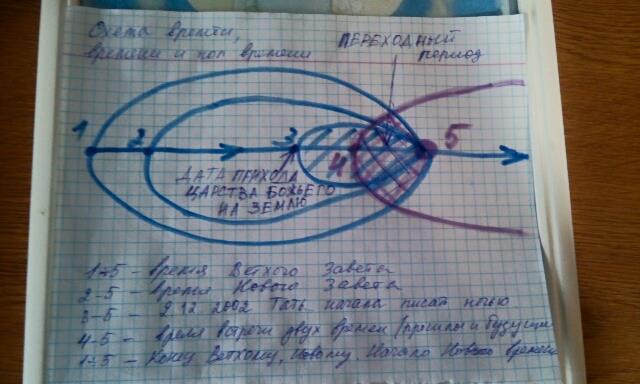 Схема времени,
времени и пол времени
ПЕРЕХОДНЫЙ
период
1 2 3 4 5
ДАТА ПРИХОДА
ЦАРСТВА БОЖЬЕГО
НА ЗЕМЛЮ
1-5 - время Ветхого Завета
2-5 - время Нового Завета
3-5 - 2002 Тать начала писат ночью
4-5 - время встречи двух времен (прошлы и будуще
1-5 - Конец Ветхому, Новому. Начало Нового времени